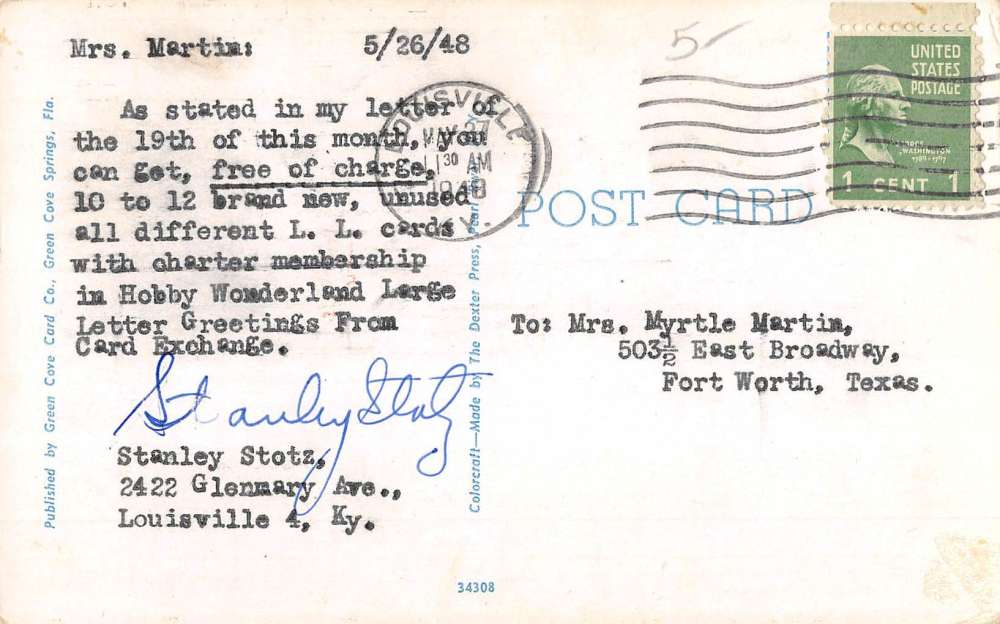 Mrs. Martin: 5/26/48
As stated in my letter of
the 19th of this month, you
can get, free of charge,
10 to 12 brand new, unused
all different L. L. cards
with charter membership
in Hobby Wonderland Large
Letter Greetings From
Card Exchange.
Stanley Stotz
Stanley Stotz,
2422 Glenmary Ave.,
Louisville 4, Ky.
Published by Green Cove Card Co., Green Cove Springs, Fla.
Colorcraft—Made by The Dexter Press,
34308
5-
LOUISVILLE
11 30 AM
1948
KY.
POST CARD
UNITED
STATES
POSTAGE
WASHINGTON
1789-1797
1 CENT 1
To: Mrs. Myrtle Martin,
503½ East Broadway,
Fort Worth, Texas.